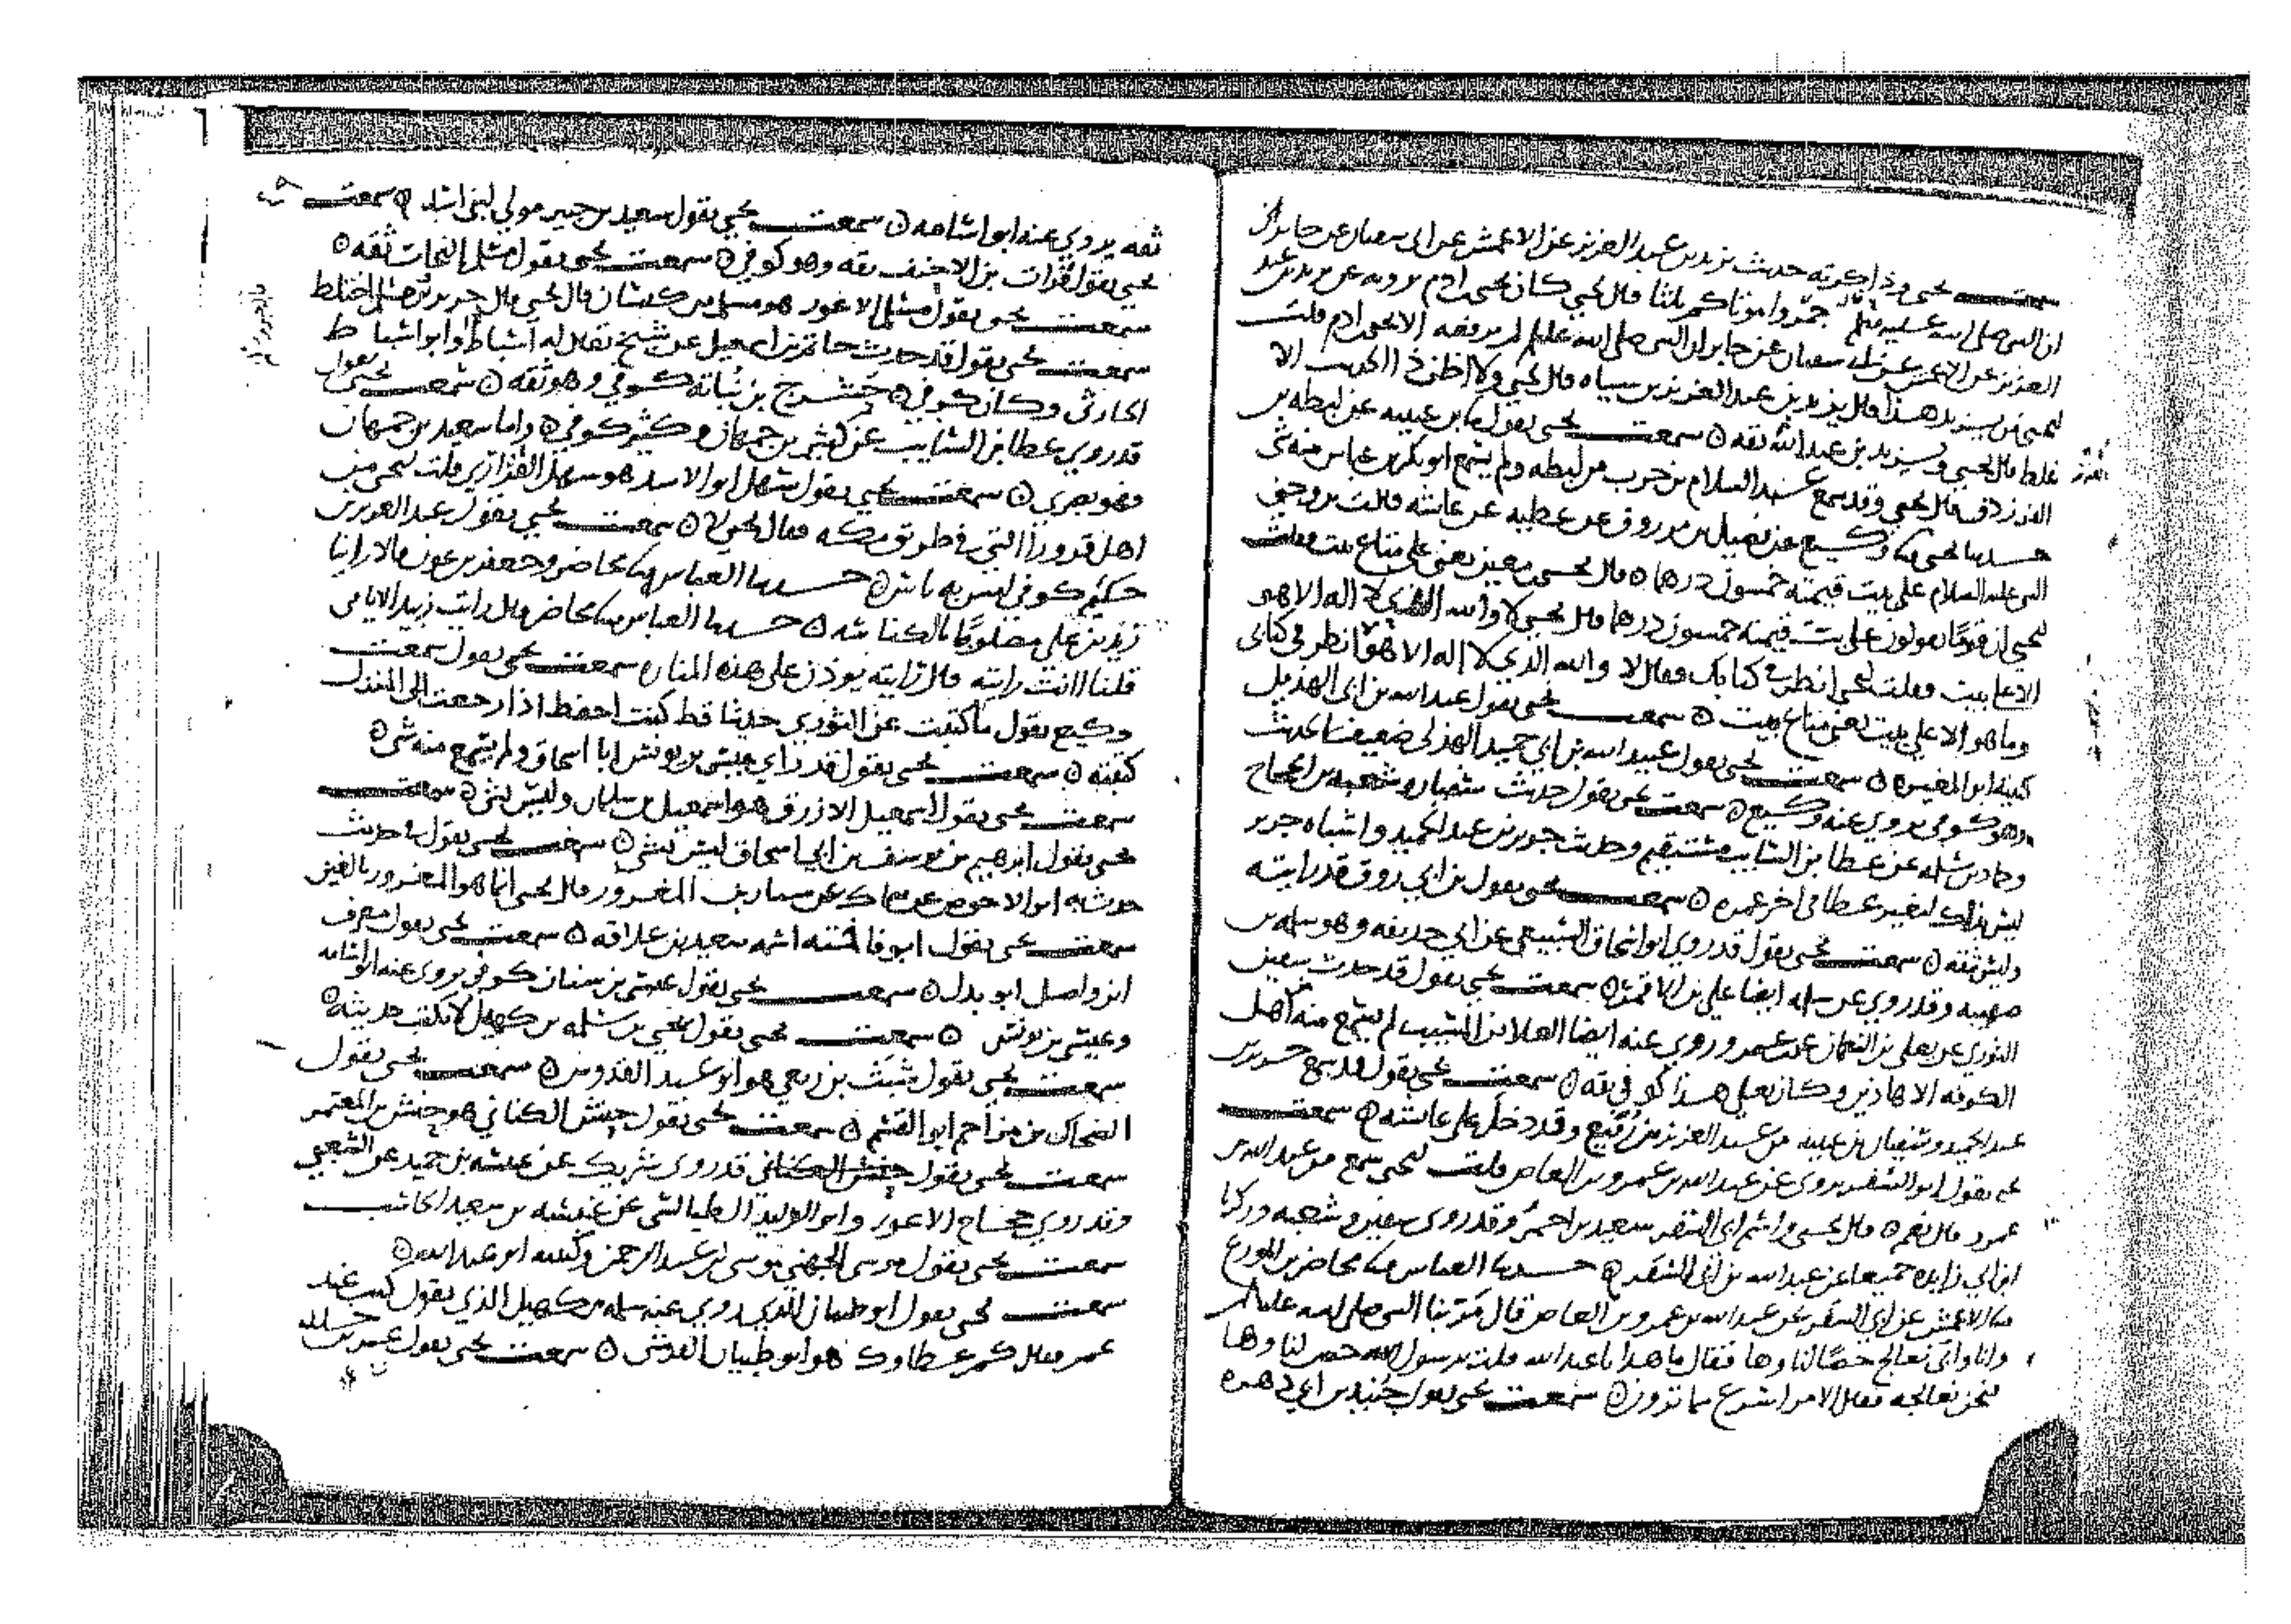 سمعت يحيى وذاكرته حديث يزيد بن عبد العزيز عن الاعمش عن ابي سفيان عن جابر
ان النبي صلى الله عليه وسلم قال جمروا موتاكم ثلثا قال يحيى كان يحيى بن ادم يرويه عن يزيد بن عبد
العزيز عن الاعمش عن ابي سفيان عن جابر ان النبي صلى الله عليه لم يرفعه الا يحيى بن ادم قلت
ليحيى من يزيد هذا قال يزيد بن عبد العزيز بن سياه قال يحيى ولا اظن ذا الحديث الا
غلط قال يحيى ويزيد بن عبد العزيز ثقه سمعت يحيى يقول ابن عيينه عن لبطه بن
الفرزدق قال يحيى وقد سمع عبد السلام بن حرب من لبطه ولم يسمع ابو بكر بن عياش منه شي
حدثنا يحيى نا وكيع عن فضيل بن مرزوق عن عطيه عن عائشه قالت تزوجني
النبي عليه السلام على بيت قيمته خمسون درهما قال يحيى بن معين يعني على متاع بيت فقلت
ليحيى ان قوما يقولون على بت قيمته خمسون درهما قال يحيى لا والله الذي لا اله الا هو
الا على بيت فقلت ليحيى انظر في كتابك فقال لا والله الذي لا اله الا هو لا انظر في كتابي
وما هو الا على بيت يعني متاع بيت سمعت يحيى يقول عبد الله بن ابي الهذيل
كنيته ابو المغيره سمعت يحيى يقول عبيد الله بن ابي حميد الهذلي ضعيف الحديث
وهو كوفي يروي عنه وكيع سمعت يحيى يقول حديث سفيان وشعبه بن الحجاج
وحماد بن سلمه عن عطا بن السايب مستقيم وحديث جرير بن عبد الحميد واشباه جرير
ليس بذاك لتغير عطا في اخر عمره سمعت يحيى يقول بن ابي روق قد رايته
وليس بثقه سمعت يحيى يقول قد روى ابو اسحاق السبيعي عن ابي حذيفه وهو سلمه بن
صهيبه وقد روى عن سلمه ايضا علي بن الاقمر سمعت يحيى يقول قد حدث سفين
الثوري عن يعلى بن النعمان عن بن عمر وروى عنه ايضا العلا بن المسيب لم يسمع منه اهل
الكوفه الا هاذين وكان يعلى هذا كوفي ثقه سمعت يحيى يقول قد سمع جرير بن
عبد الحميد وسفيان بن عيينه من عبد العزيز بن رفيع وقد دخل على عائشه سمعت
يحيى يقول ابو السفر يروي عن عبد الله بن عمرو بن العاص قلت ليحيى سمع من عبد الله بن
عمرو قال نعم قال يحيى واسم ابي السفر سعيد بن احمد وقد روى سفين وشعبه وزكريا
ابن ابي زايده جميعا عن عبد الله بن ابي السفر حدثنا العباس نا محاضر بن المورع
نا الاعمش عن ابي السفر عن عبد الله بن عمرو بن العاص قال مر بنا النبي صلى الله عليه وسلم
وانا وابي نعالج خصا لنا وها فقال ما هذا يا عبد الله قلت يرسول الله خص لنا وها
فنحن نعالجه فقال الامر اسرع مما ترون سمعت يحيى يقول جنيد بن ابي دهره
ثقه يروي عنه ابو اسامه سمعت يحيى يقول سعيد بن جبير مولى لبني اسد سمعت
يحيى يقول فرات بن الاحنف ثقه وهو كوفي سمعت يحيى يقول مسلم النحات ثقه
سمعت يحيى يقول مسلم الاعور هو مسلم بن كيسان قال يحيى قال جرير بن مسلم اختلط
سمعت يحيى يقول قد حدث حاتم بن اسمعيل عن شيخ يقال له اسباط او ابو اسباط
الحارثي وكان كوفي حشرج بن نباته كوفي وهو ثقه سمعت يحيى يقول
قد روى عطا بن السايب عن كثير بن جمهان وكثير كوفي واما سعيد بن جمهان
فهو بصري سمعت يحيى يقول سهل ابو الاسد هو سهل القراري قلت ليحيى من
اهل قرورا التي في طريق مكه فقال يحيى لا سمعت يحيى يقول عبد العزيز بن
حكيم كوفي ليس به باس حدثنا العباس نا محاضر وجعفر بن عون قالا راينا
زيد بن علي مصلوبا بالكناسه حدثنا العباس نا محاضر قال رايت زبيد الايامي
قلنا له انت رايته قال رايته يوذن على هذه المناره سمعت يحيى يقول سمعت
وكيع يقول ما كتبت عن الثوري حديثا قط كنت احفظ اذا رجعت الى المنزل
كتبته سمعت يحيى يقول قد راى عيسى بن يونس ابا اسحاق ولم يسمع منه شي
سمعت يحيى يقول اسمعيل الازرق هو اسمعيل بن سلمان وليس بشي سمعت
يحيى يقول ابرهيم بن يوسف بن ابي اسحاق ليس بشي سمعت يحيى يقول في حديث
حدث به ابو الاحوص عن سماك عن سيار بن المغرور قال يحيى انما هو المعرور بالعين
سمعت يحيى يقول ابو فاخته اسمه سعيد بن علاقه سمعت يحيى يقول معرف
ابن واصل ابو بدل سمعت يحيى يقول عيسى بن سنان كوفي يروي عنه ابو اسامه
وعيسى بن يونس سمعت يحيى يقول يحيى بن سلمه بن كهيل لا يكتب حديثه
سمعت يحيى يقول شبث بن ربعي هو ابو عبد القدوس سمعت يحيى يقول
الضحاك بن مزاحم ابو القسم سمعت يحيى يقول حنش الكناني هو حنش بن المعتمر
سمعت يحيى يقول قد روى شريك عن عنبسه بن حميد عن الشعبي
وقد روى حجاج الاعور وابو الوليد الطيالسي عن عنبسه بن سعيد الكاتب
سمعت يحيى يقول موسى الجهني موسى بن عبد الرحمن وكنيته ابو عبد الله
سمعت يحيى يقول ابو ظبيان الذي روى عنه سلمه بن كهيل الذي يقول كنت عند
عمر فقال كم عطاوك هو ابو ظبيان القرشي سمعت يحيى يقول